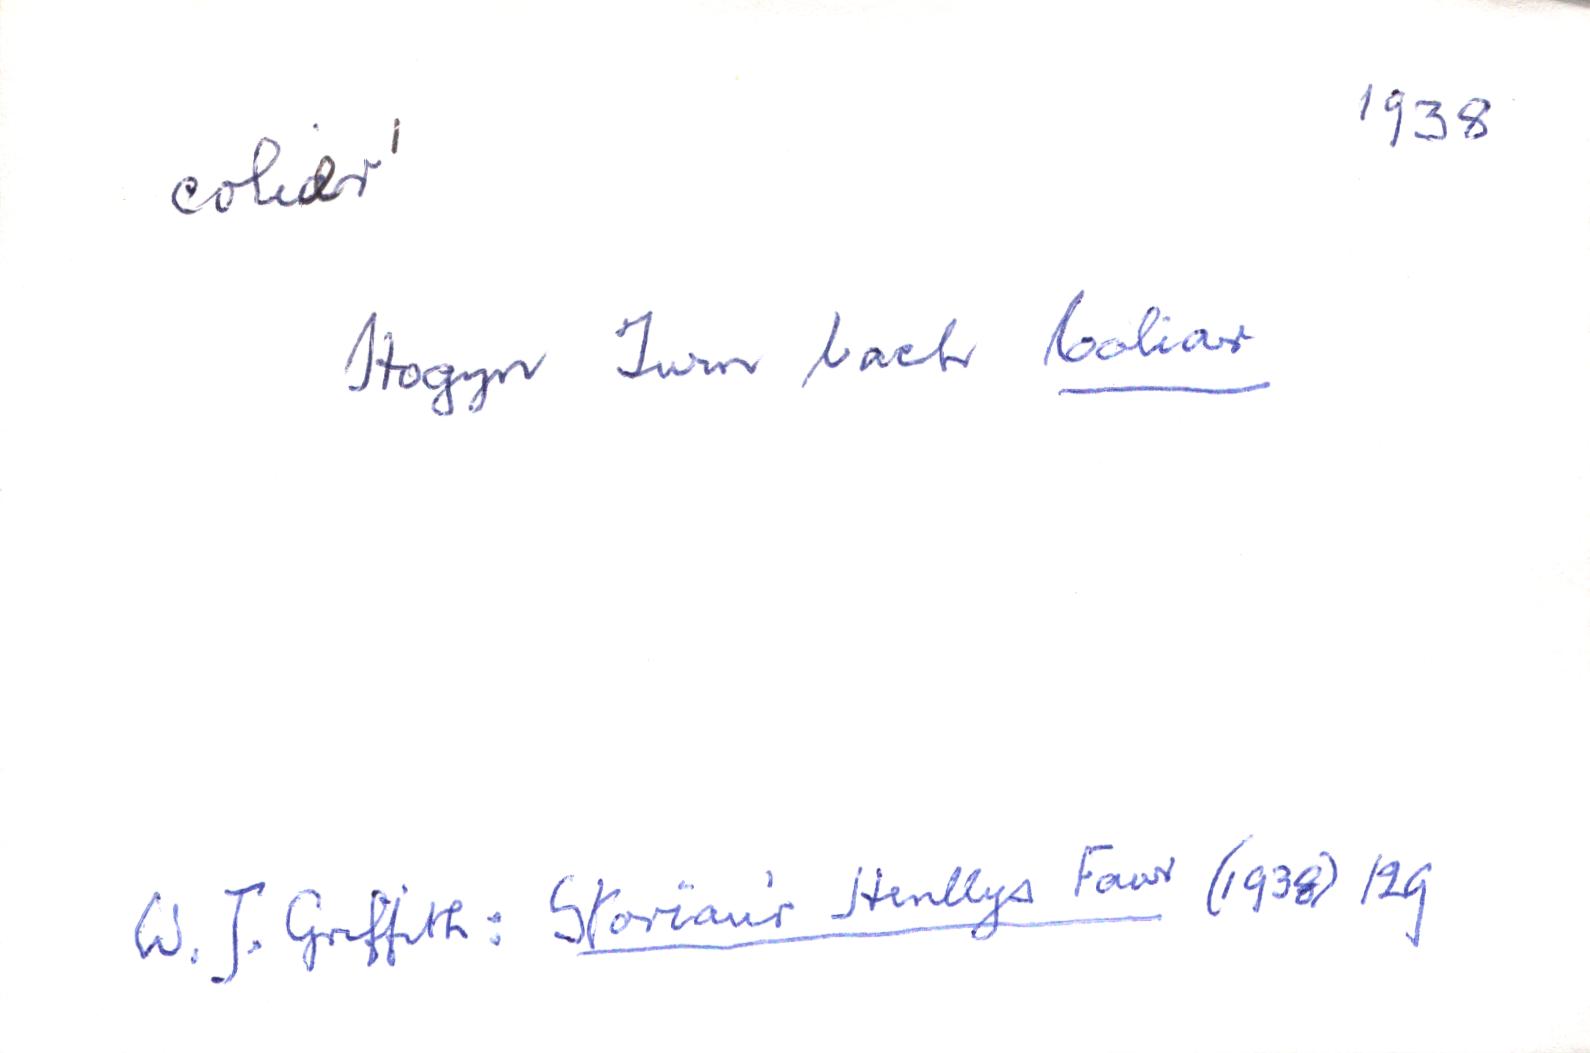 1938
coliar¹
Hogyn Twm bach Coliar
W. J. Griffith: Storïau'r Henllys Fawr (1938) 129